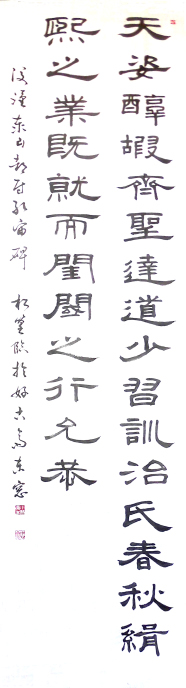 天姿醇嘏齊聖達道少習訓治氏春秋緝
熙之業既就而閨閾之行允恭
後漢泰山都尉孔宙碑 松 臨於好古斋東窓